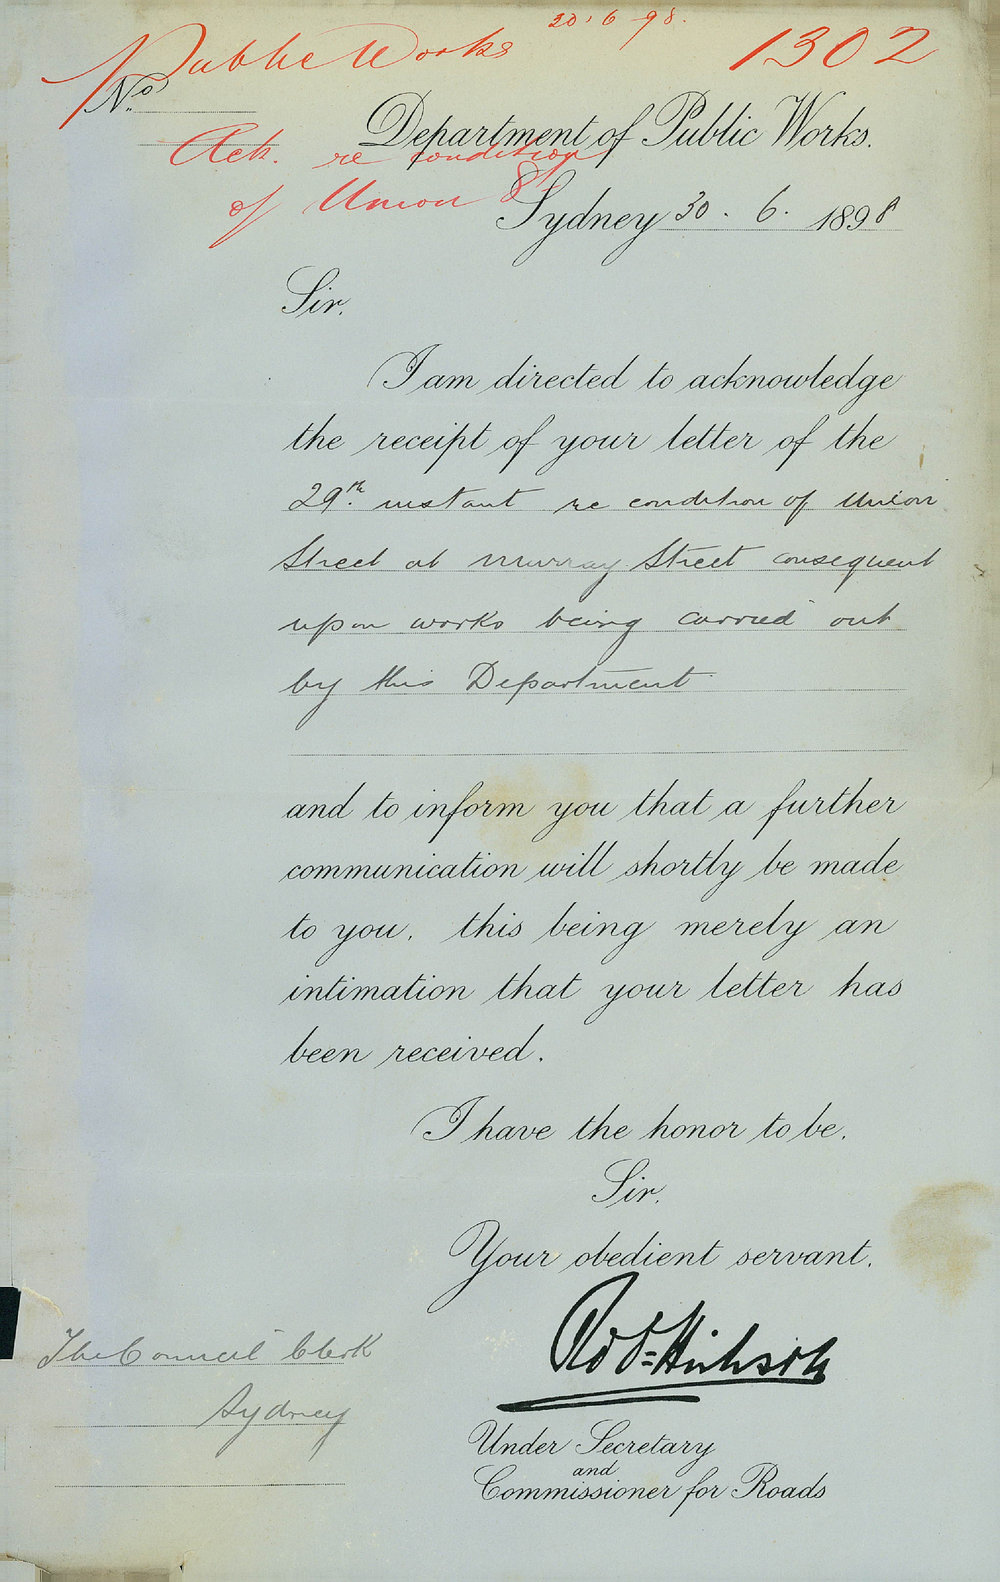 Public Works 30.6.98. 1302
No.
Department of Public Works.
Ack. re condition
of Union St
Sydney 30. 6. 1898
Sir,
I am directed to acknowledge
the receipt of your letter of the
29th. instant re condition of Union
Street at Murray Street consequent
upon works being carried out
by this Department
and to inform you that a further
communication will shortly be made
to you, this being merely an
intimation that your letter has
been received.
I have the honor to be,
Sir,
Your obedient servant,
The Council Clerk
Sydney
Under Secretary
and
Commissioner for Roads